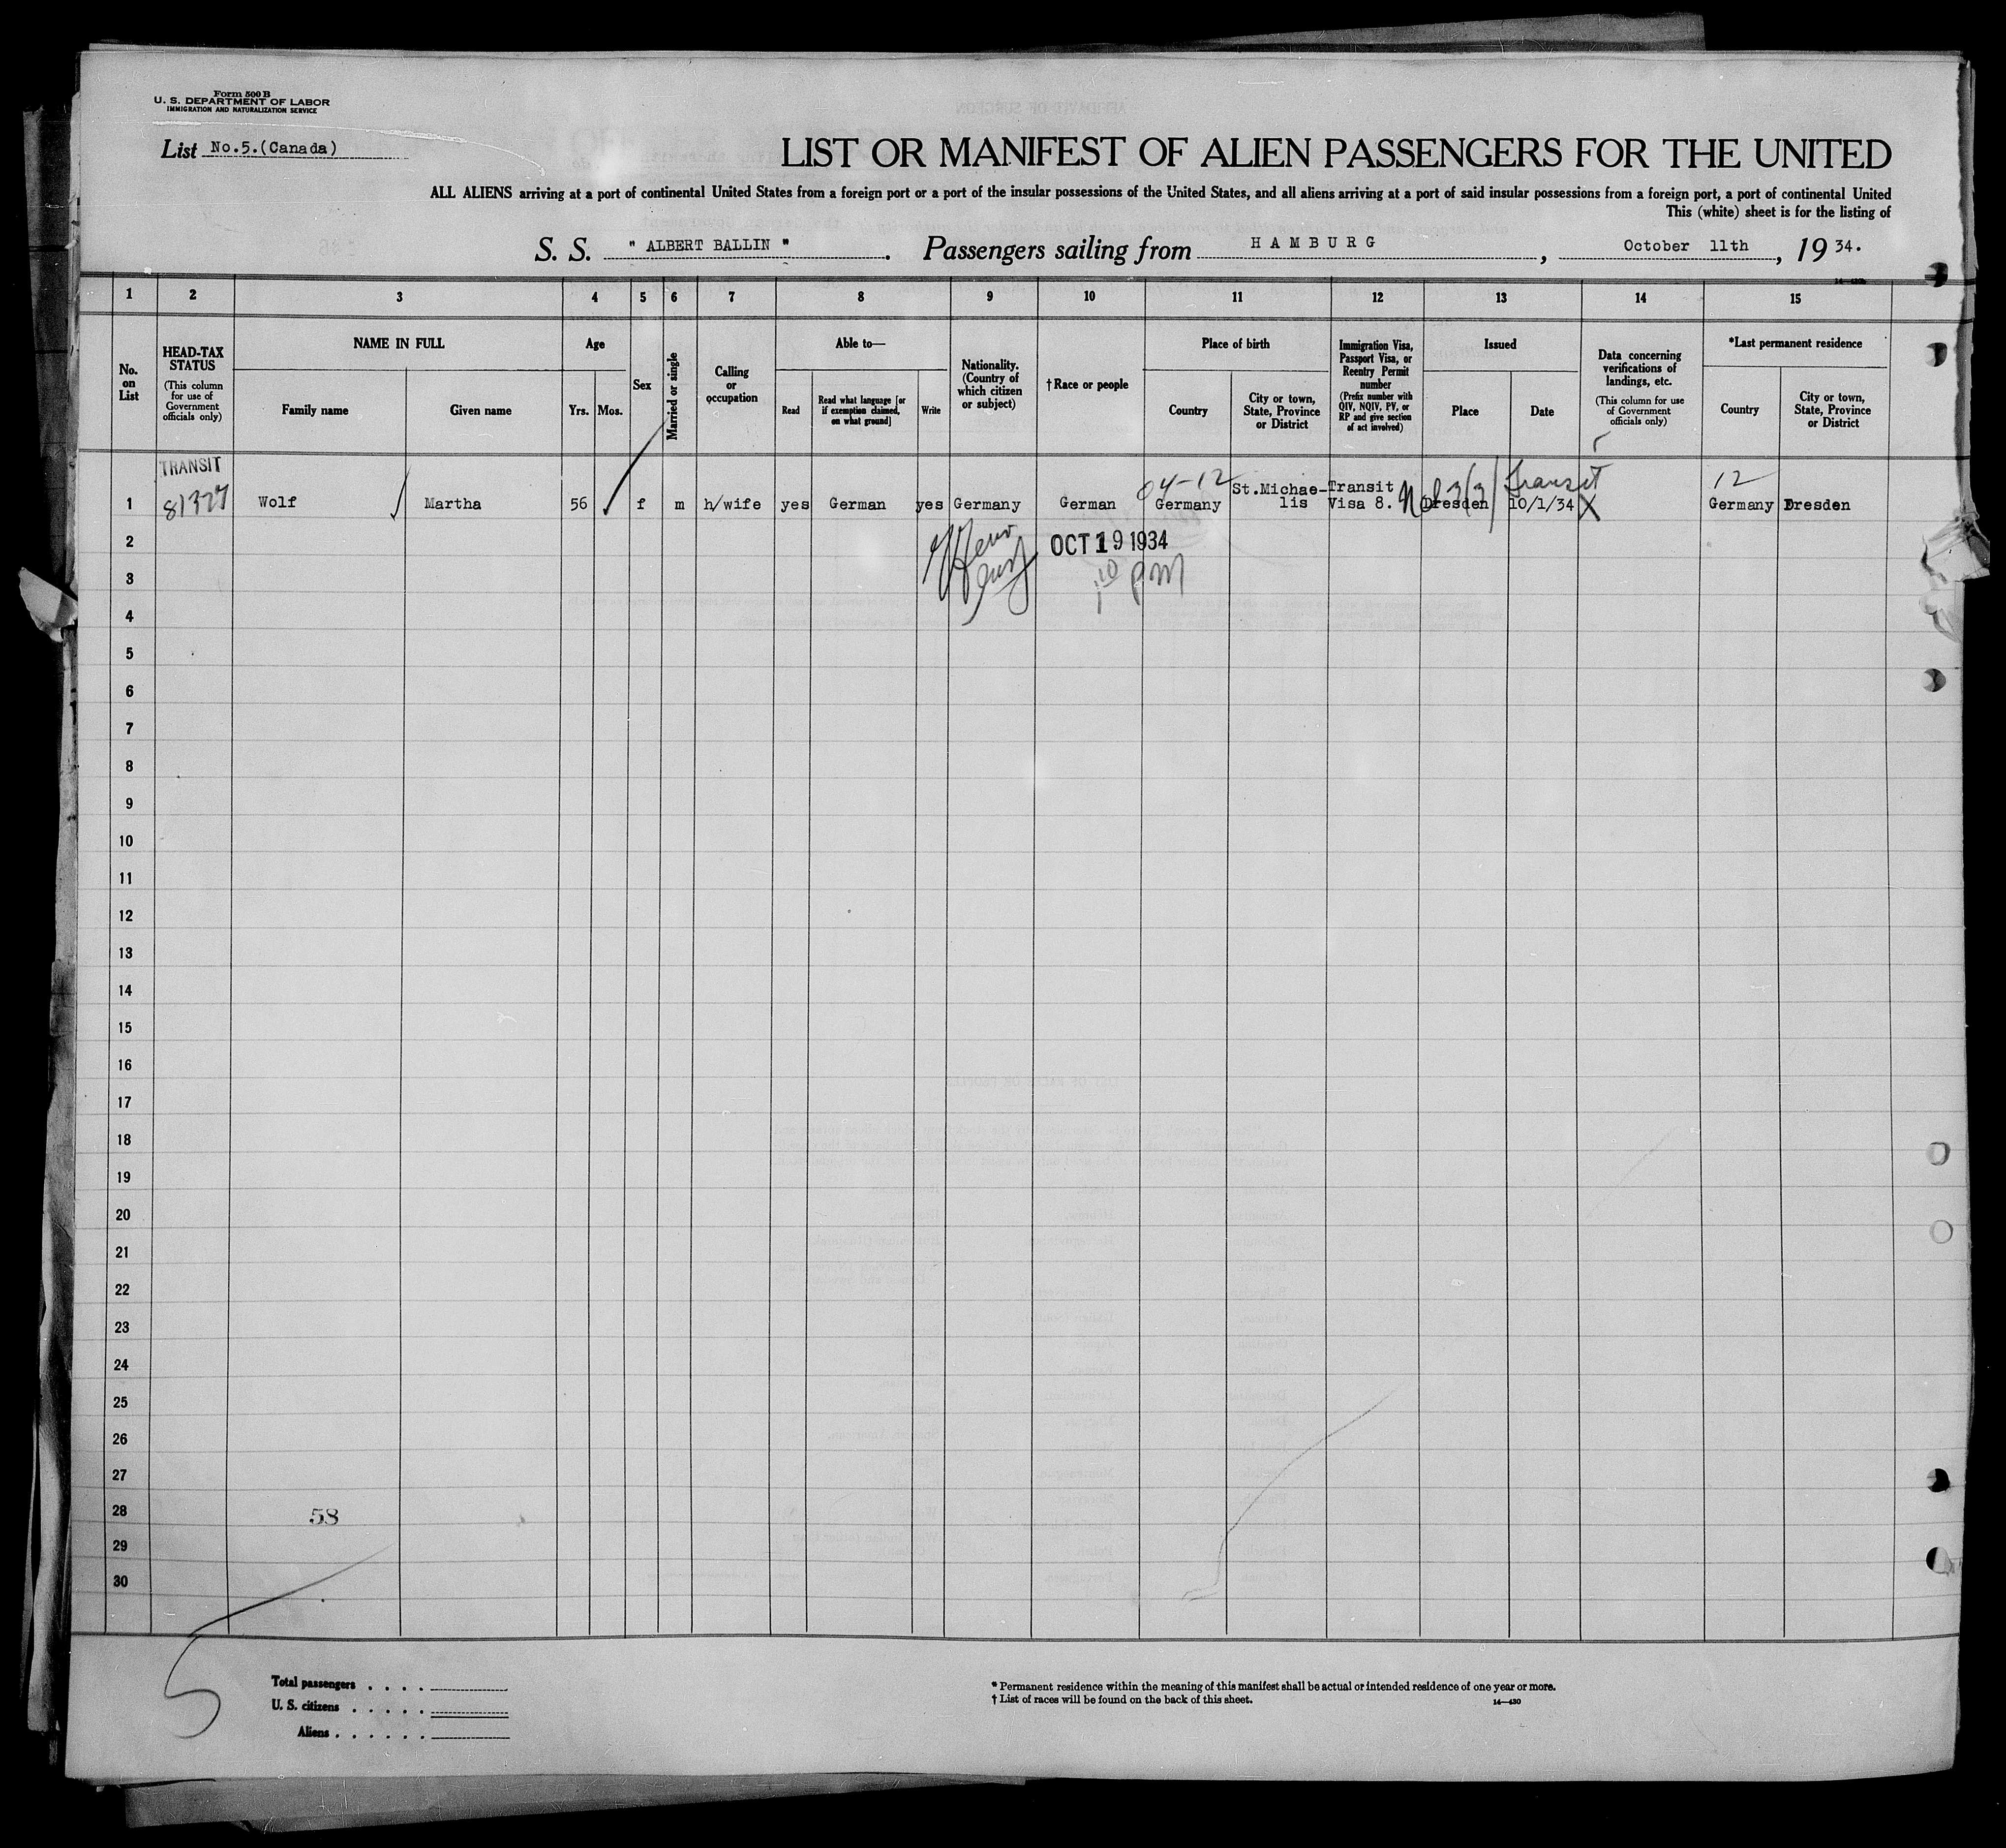 Form 500 B
U. S. DEPARTMENT OF LABOR
IMMIGRATION AND NATURALIZATION SERVICE
List No.5.(Canada)
LIST OR MANIFEST OF ALIEN PASSENGERS FOR THE UNITED
ALL ALIENS arriving at a port of continental United States from a foreign port or a port of the insular possessions of the United States, and all aliens arriving at a port of said insular possessions from a foreign port, a port of continental United
This (white) sheet is for the listing of
S. S. " ALBERT BALLIN ". Passengers sailing from HAMBURG, October 11th, 19 34.
1 2 3 4 5 6 7 8 9 10 11 12 13 14 15
No. on List
HEAD-TAX STATUS
(This column for use of Government officials only)
NAME IN FULL
Family name
Given name
Age
Yrs. Mos.
Sex
Married or single
Calling or occupation
Able to—
Read
Read what language [or if exemption claimed, on what ground]
Write
Nationality. (Country of which citizen or subject)
† Race or people
Place of birth
Country
City or town, State, Province or District
Immigration Visa, Passport Visa, or Reentry Permit number
(Prefix number with QIV, NQIV, PV, or RP and give section of act involved)
Issued
Place
Date
Data concerning verifications of landings, etc.
(This column for use of Government officials only)
*Last permanent residence
Country
City or town, State, Province or District
TRANSIT
04-12
Transit
12
1 81377 Wolf Martha 56 f m h/wife yes German yes Germany German Germany St.Michae-lis Transit Visa 8. Dresden 10/1/34 X Germany Dresden
2 OCT 19 1934
3 1 10 PM
4
5
6
7
8
9
10
11
12
13
14
15
16
17
18
19
20
21
22
23
24
25
26
27
28 58
29
30
5
Total passengers . . . .
U. S. citizens . . . . .
Aliens . . . . . .
* Permanent residence within the meaning of this manifest shall be actual or intended residence of one year or more.
† List of races will be found on the back of this sheet.
14—430